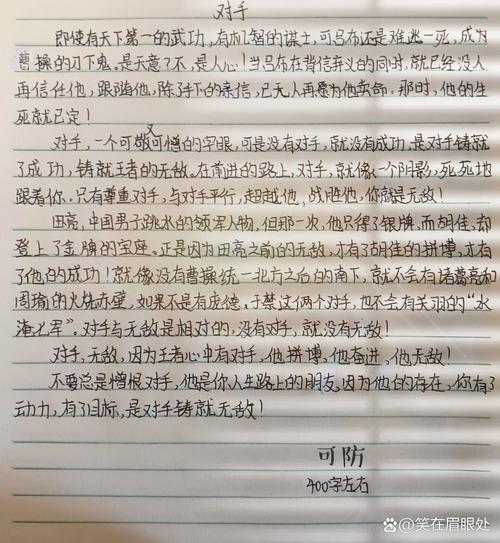 对手
即使有天下第一的武功,有机智的谋士,可吕布还是难逃一死,成为
曹操的刀下鬼。是天意?不,是人心!当吕布在背信弃义的同时,就已经没人
再信任他,跟随他,除了手下的亲信,已无人再愿为他卖命。那时,他的生
死就已定!
对手,一个可敬又可憎的字眼,可是没有对手,就没有成功,是对手铸就
了成功,铸就王者的无敌。在前进的路上,对手,就像一个阴影,死死地
跟着你。只有尊重对手,与对手平行,超越他,战胜他,你就是无敌!
田亮,中国男子跳水的领军人物,但那一次,他只得了银牌,而胡佳,却
登上了金牌的宝座。正是因为田亮之前的无敌,才有了胡佳的拼博,才有
了他的成功!就像没有曹操统一北方之后的南下,就不会有诸葛亮和
周瑜的火烧赤壁,如果不是有庞德、于禁这两个对手,也不会有关羽的“水
淹七军”。对手与无敌是相对的,没有对手,就没有无敌!
对手,无敌,因为王者心中有对手,他拼博,他奋进,他无敌!
不要总是憎恨对手,他是你人生路上的朋友,因为他的存在,你有了
动力,有了目标,是对手铸就无敌!
可防
400字左右
百家号@笑在眉眼处